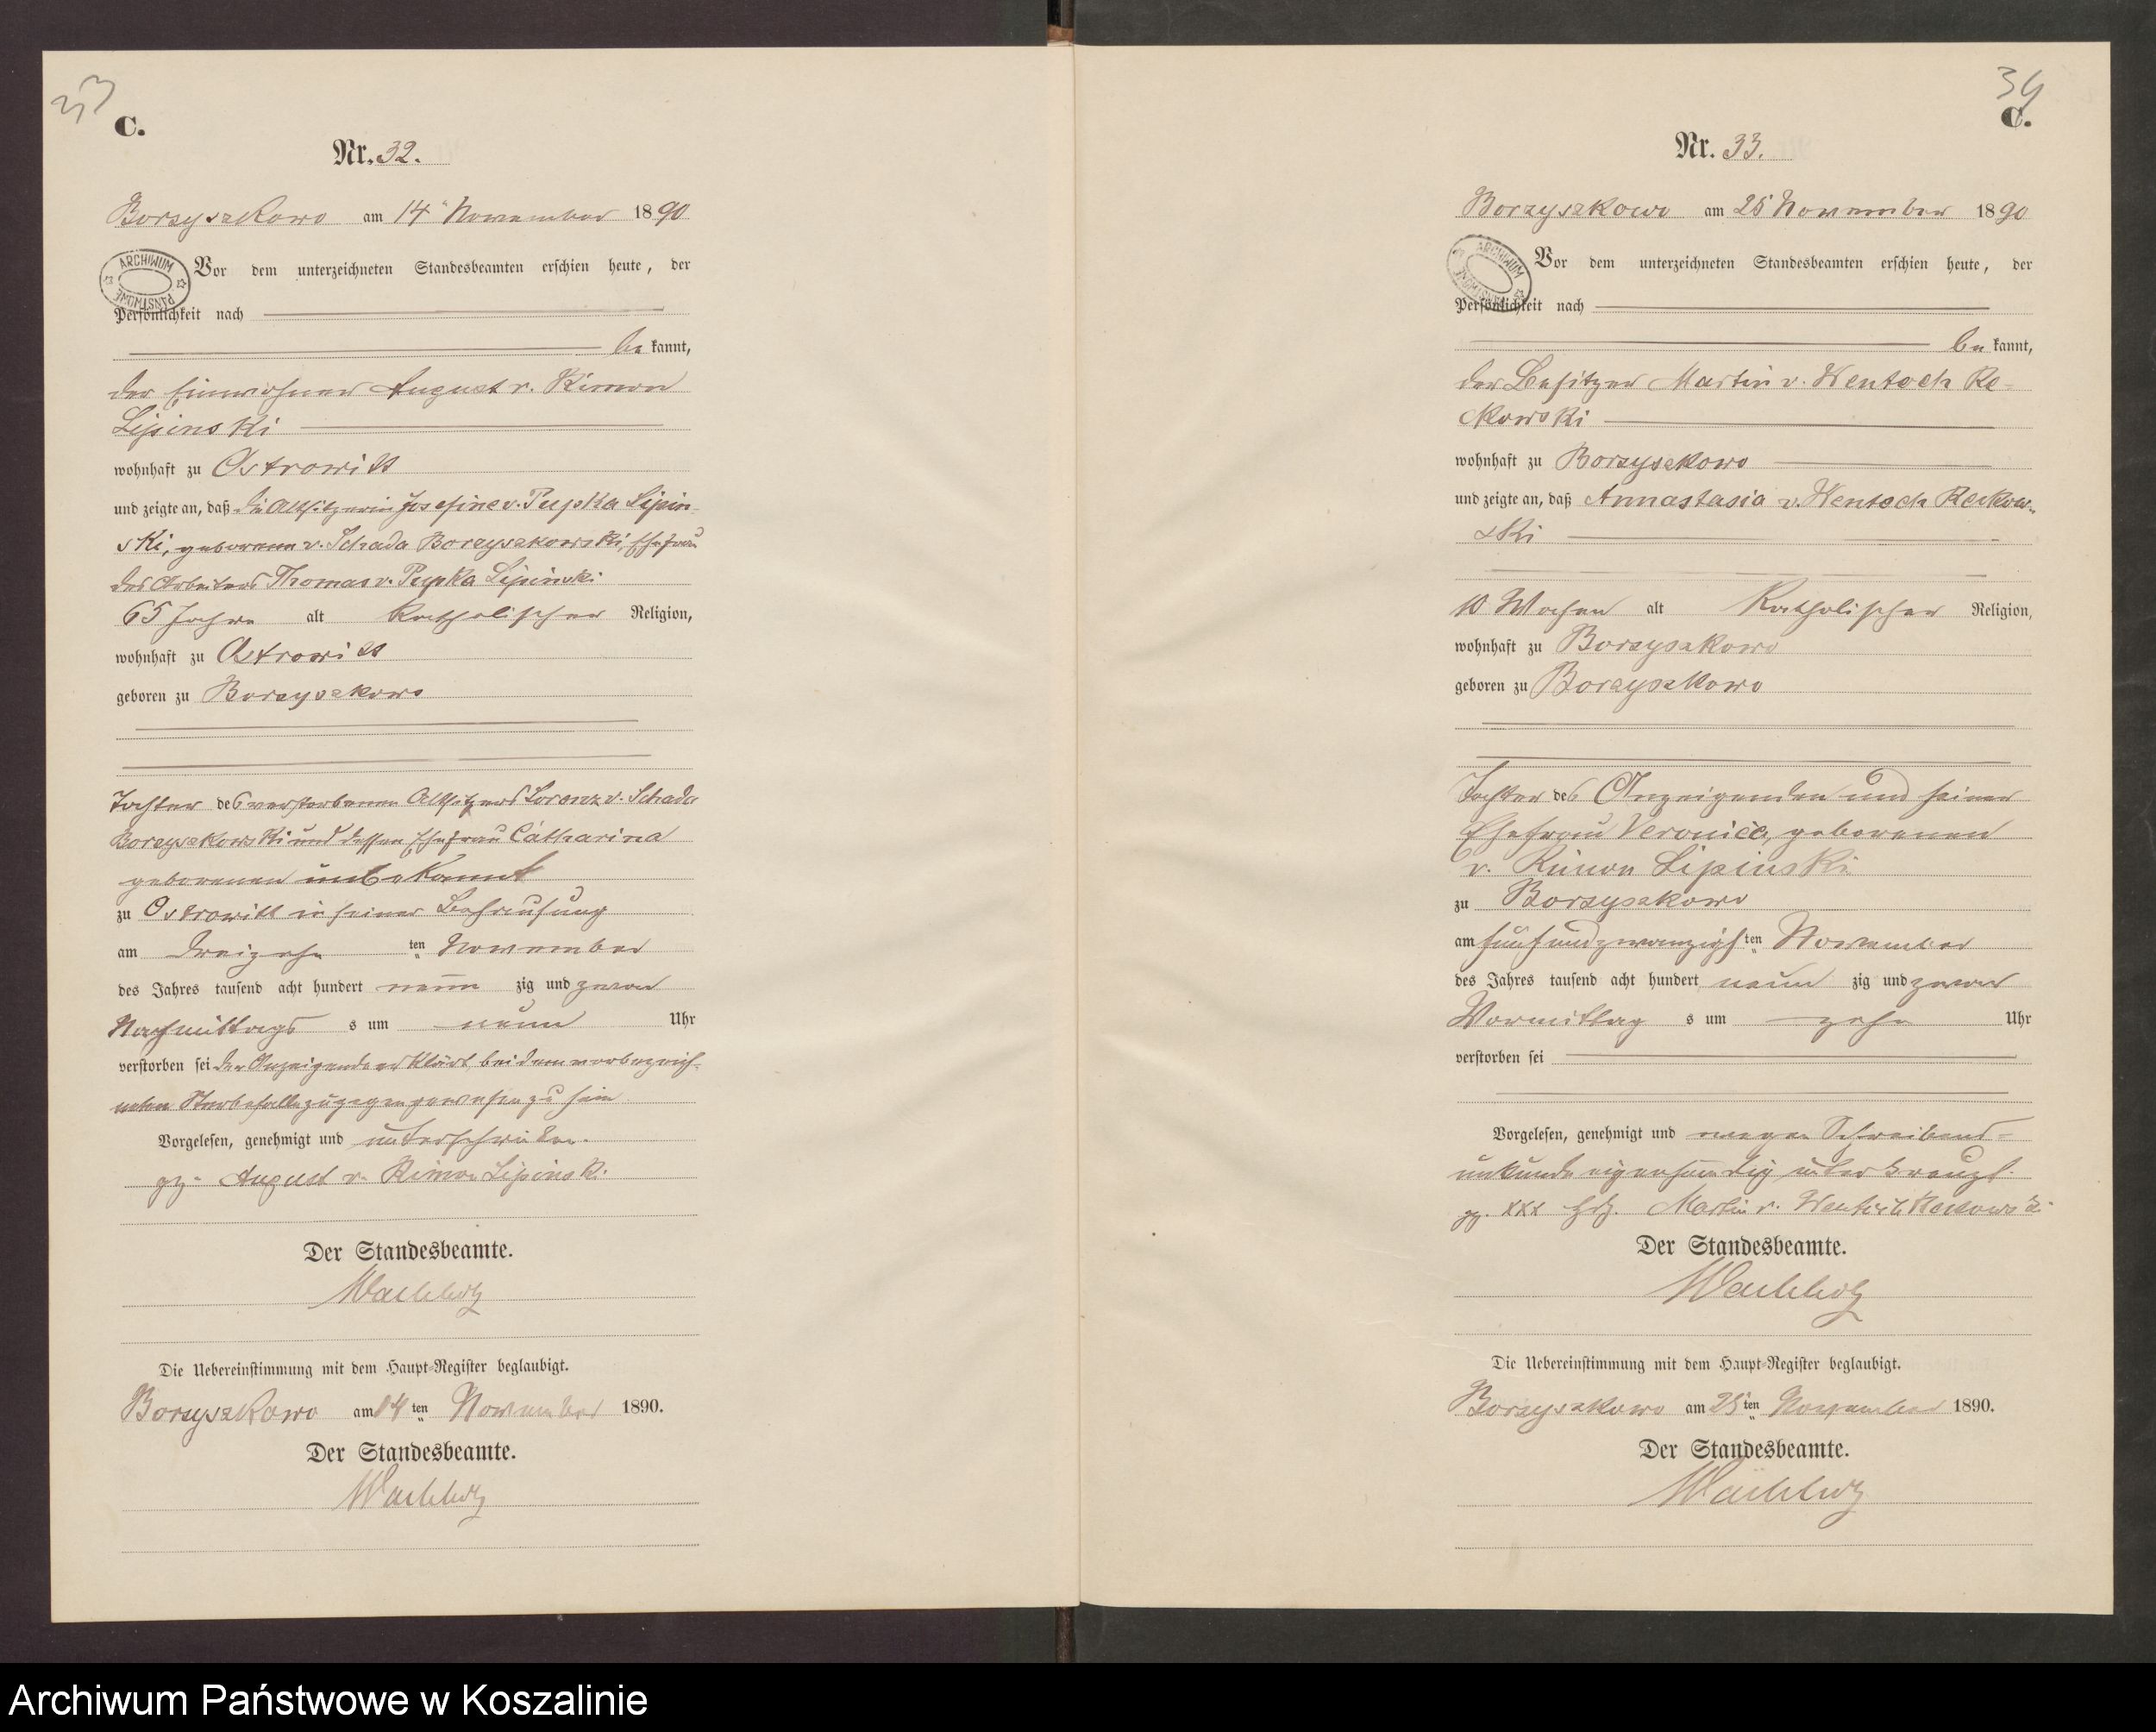 33
C.
Nr. 32.
Borzyszkowo am 14 November 1890
ARCHIWUM PAŃSTWOWE
Vor dem unterzeichneten Standesbeamten erschien heute, der
Persönlichkeit nach
be kannt,
der Einwohner August v. Kimon
Lipinski
wohnhaft zu Ostrowitt
und zeigte an, daß die Altsitzerin Josefine v. Pupka Lipin
ski, geborene v. Schada Borzyszkowski, Ehefrau
des Arbeiters Thomas v. Pupka Lipinski
65 Jahre alt katholischer Religion,
wohnhaft zu Ostrowitt
geboren zu Borzyszkowo
Tochter des verstorbenen Altsitzers Lorenz v. Schada
Borzyszkowski und dessen Ehefrau Catharina
geborenen unbekannt
zu Ostrowitt in seiner Behausung
am dreizehn ten November
des Jahres tausend acht hundert neun zig und zwar
Nachmittags s um neun Uhr
verstorben sei der Anzeigende erklärt bei dem vorbezeich-
neten Sterbefalle zugegen gewesen zu sein
Vorgelesen, genehmigt und unterschrieben.
gz. August v. Kimon Lipinski
Der Standesbeamte.
Wachholz
Die Uebereinstimmung mit dem Haupt-Register beglaubigt.
Borzyszkowo am 14 ten November 1890.
Der Standesbeamte.
Wachholz
34
C.
Nr. 33.
Borzyszkowo am 25 November 1890
ARCHIWUM PAŃSTWOWE
Vor dem unterzeichneten Standesbeamten erschien heute, der
Persönlichkeit nach
be kannt,
der Besitzer Martin v. Wentoch Re-
ckowski
wohnhaft zu Borzyszkowo
und zeigte an, daß Annastasia v. Wentoch Reckow-
ski
10 Wochen alt katholischer Religion,
wohnhaft zu Borzyszkowo
geboren zu Borzyszkowo
Tochter des Anzeigenden und seiner
Ehefrau Veronica, geborenen
v. Kimon Lipinski
zu Borzyszkowo
am fünfundzwanzigs ten November
des Jahres tausend acht hundert neun zig und zwar
Vormittag s um zehn Uhr
verstorben sei
Vorgelesen, genehmigt und wegen Schreibens-
unkunde eigenhändig unterkreuzt.
gz. xxx Hdz. Martin v. Wentoch Reckowski
Der Standesbeamte.
Wachholz
Die Uebereinstimmung mit dem Haupt-Register beglaubigt.
Borzyszkowo am 25 ten November 1890.
Der Standesbeamte.
Wachholz
Archiwum Państwowe w Koszalinie